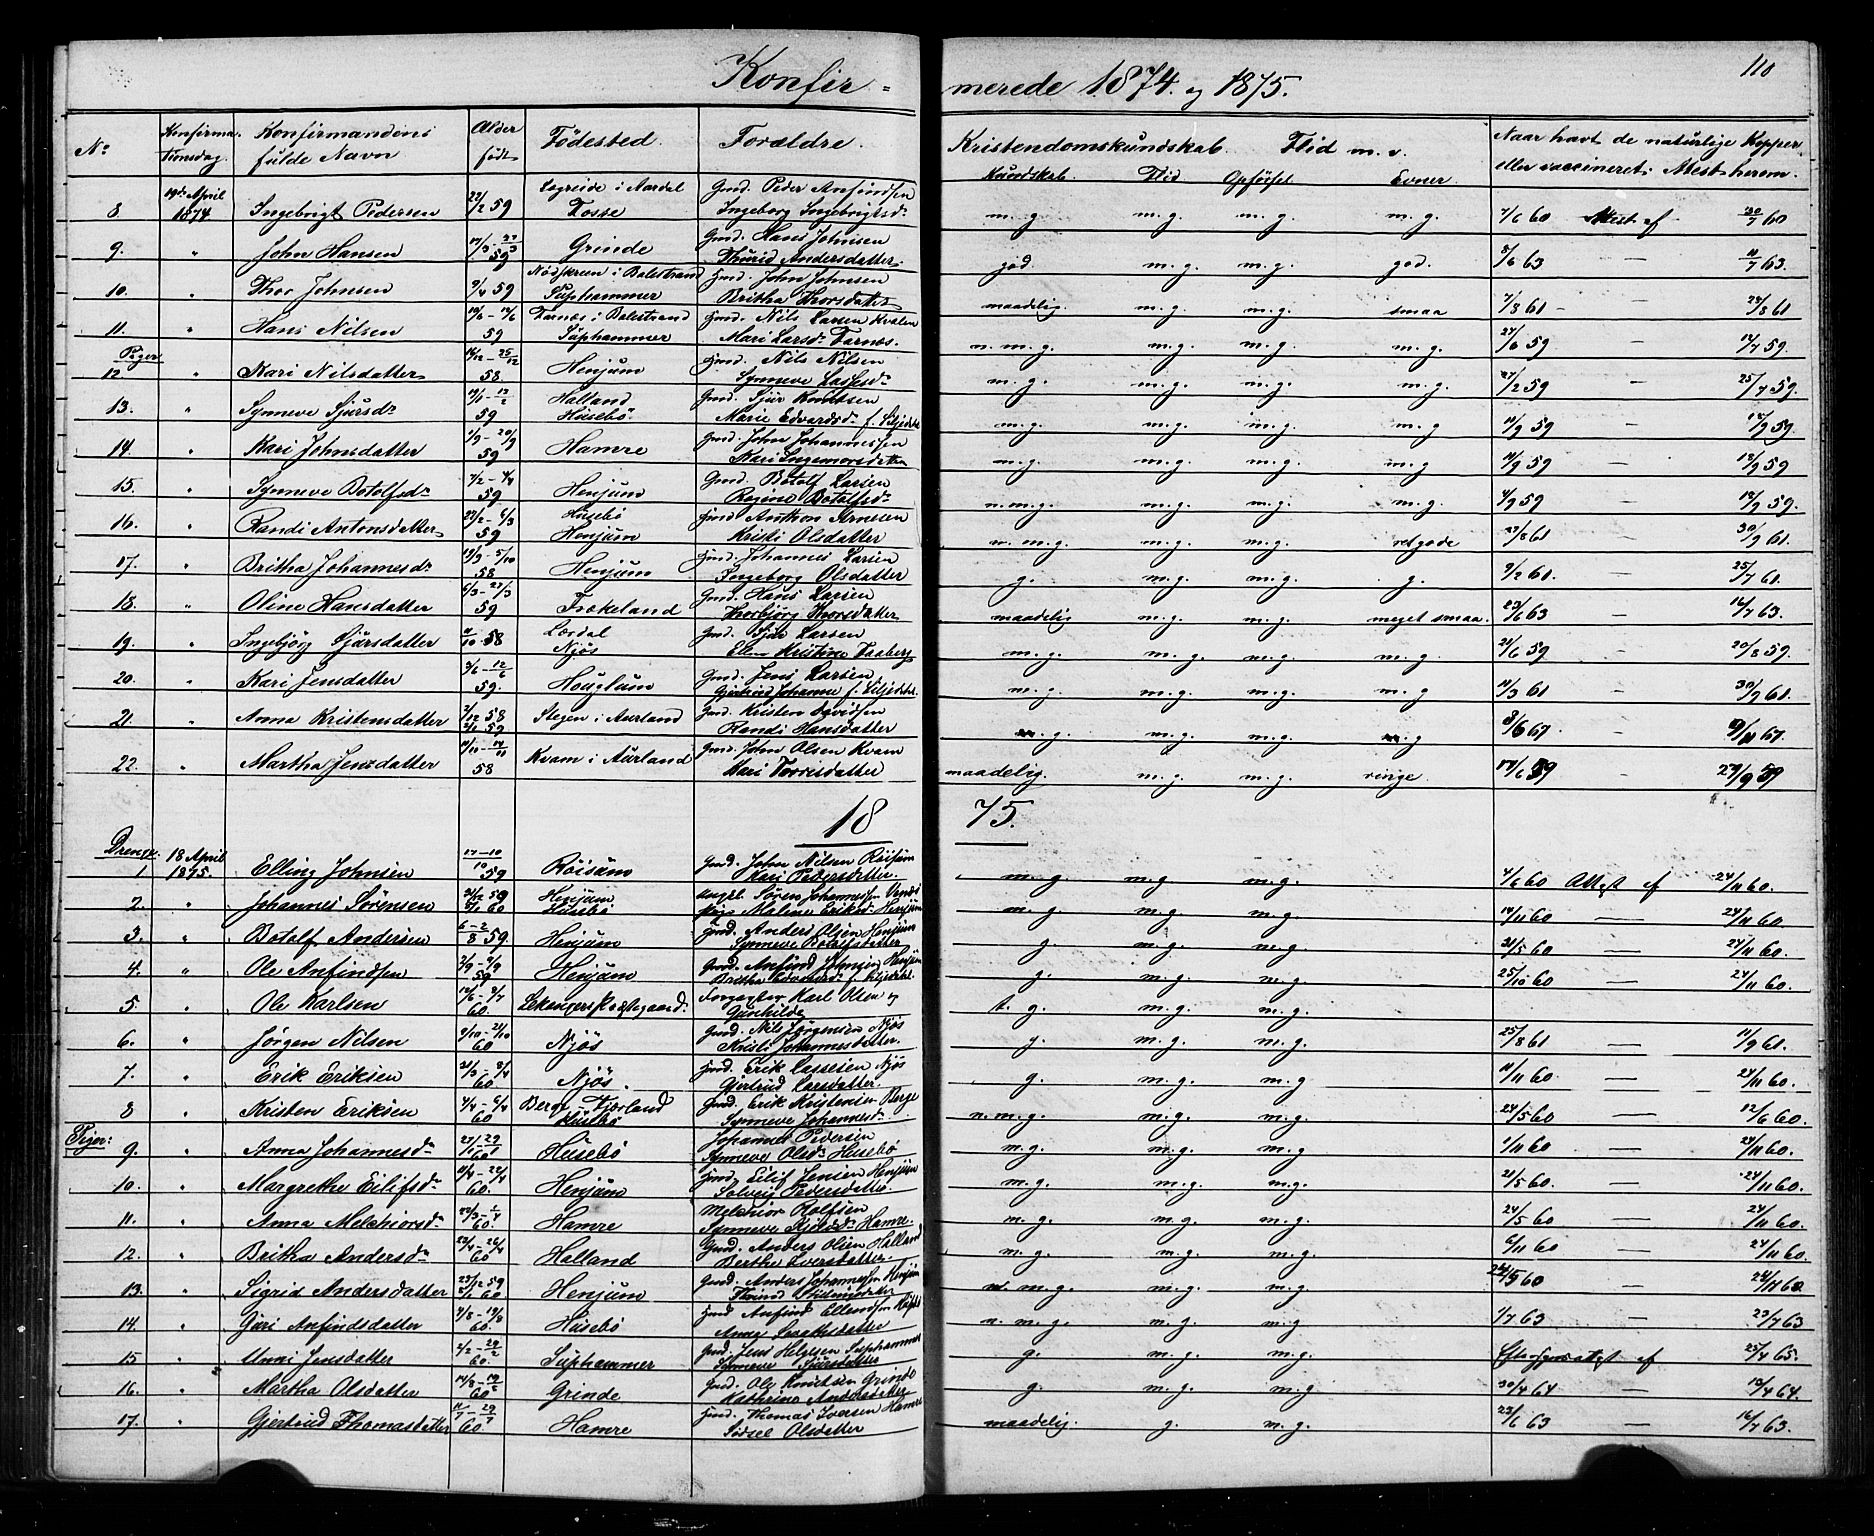 110
Konfir = merede 1874. og 1875.
No Konfirmationsdag. Konfirmandens fulde Navn Alder født Fødested. Forældre. Kristendomskundskab. Flid m. v. Naar havt de naturlige Kopper eller vaccineret: Attest herom.
Kundskab. Flid Opførsel Evner
8 19de April 1874 Ingebrigt Pedersen 22/2 59 i Aardal Fosse Gmd. Peder Anfindsen Ingeborg Ingebrigtsdr m. g. m. g. m. g. m. g. 7/6 60 Attest af 30/7 60
9. " John Hansen 59 Grinde Gmd. Hans Johnsen Thurid Andersdatter. god. m. g. m. g. god. 5/6 63 — 11/7 63.
10. " Thor Johnsen 9/4 59 i Balestrand Suphammer Hmd. John Johnsen Britha Thorsdatter maadelig. m. g. m. g. smaa 7/8 61 - 28/8 61
11. " Hans Nilsen 59 Farnæs i Balestrand Suphammer Hmd. Nils Larsen Kvalen Mari Larsdr Farnæs. n. m. g. m. g. m. g. m. g. 27/6 59 — 12/7 59.
Piger
12 " Kari Nilsdatter 58. Henjum Hmd. Nils Nilsen Synneve Lassesdr m. g. m. g. m. g. m. g. 27/2 59 — 25/7 59.
13. " Synneve Sjursdr 59 Halland Husebø Gmd. Sjur Knutsen Marie Edvardsd. f. m. g. m. g. m. g. m. g 11/9 59 — 12/9 59.
14. " Kari Johnsdatter 1/9 - 20/9 59 Hamre Gmd. John Johannessen Kari Ingemorsdatter m. g. m. g. m. g. m. g 11/9 59 — 12/9 59
15. " Synneve Botolfsdr 59 Henjum Gmd. Botolf Larsen Ragine Botolfsdr n. m. g. m. g. m. g. m. g. 4/9 59 — 12/9 59.
16. " Randi Antonsdatter 59 Husebø Henjum Hmd Anthon Arnesen Kristi Olsdatter n. m. g. m. g. m. g. retgode 27/8 61 — 30/9 61.
17. " Britha Johannesdr 58. Henjum Hmd. Johannes Larsen Ingeborg Olsdatter g. m. g. m. g. g. 9/2 60. — 25/7 60.
18. " Oline Hansdatter 59 Frøkeland Gmd. Hans Larsen Thorbjørg Thorsdatter maadelig m. g. m. g. meget smaa. 23/6 63 — 16/7 63.
19. " Ingebjørg Sjursdatter 11/10 58 Lærdal Njøs Gmd. Sjur Larsen Ellen Kristine Faaberg m. g. m. g. m. g. m. g. 21/6 59 — 20/8 59.
20. " Kari Jensdatter 59. Houglum Gmd. Jens Larsen, Gjertrud Johanne f. m. g. m. g. m. g. m. g 11/3 61 — 30/9 61.
21. " Anna Kristensdatter 58 59 Stegen i Aurland Gmd. Kristen Davidsen Randi Hansdatter m. g. m. g. m. g. m. g 3/6 67 — 9/11 67.
22. " Martha Jensdatter 58 Kvam i Aurland Gmd. John Olsen Kvam Kari Torrisdatter maadelig. m. g. m. g. ringe 59 — 59
18 75.
Drenge.
1 18 April 1875. Elling Johnsen 59 Røisum Gmd. John Nilsen Røisum Kari Pedersdatter. m. g. m. g. m. g. 4/6 60 Attest af 24/11 60.
2. " Johannes Sørensen 59 60 Henjum Husebø Søren Johannessen Malene Eriksd. Henjum m. g. m. g. m. g. 14/11 60 — 24/11 60
3. " Botolf Andersen 59. Henjum Gmd. Anders Olsen Henjum Synneve Botolfsdatter g. m. g. m. g. 21/5 60 — 24/11 60.
4. " Ole Anfindsen 59 Henjum Gmd. Anfind Johnsen Henjum Britha g. m. g. m. g. 25/10 60 — 24/11 60.
5 " Ole Karlsen 60. Lekanger Præstegaard. Forpagter Karl Olsen og Gunhilde t. g. m. g. m. g.
6. " Jørgen Nilsen 60 Njøs Gmd. Nils Jørgensen Njøs Kristi Johannesdatter. g. m. g. m. g. 25/8 61 — 11/9 61.
7. " Erik Eriksen 60 Njøs. Hmd. Erik Lassesen Njøs Gjertrud Larsdatter. g. m. g. m. g 11/11 60. — 23/11 60.
8 " Kristen Eriksen 60 Berge Fjærland Husebø Gmd. Erik Kristensen Berge Synneve Johannesdr n. m. g. m. g. m. g. 24/5 60 — 12/6 60.
Piger:
9. " Anna Johannesdr 60 Husebø Johannes Pedersen Synneve Olsdr Husebø m. g. m. g. m. g. 1/11 60 — 23/11 60.
10. " Margrethe Eilifsdr 60. Henjum Hmd. Eilif Jensen Henjum Solveig Pedersdatter. m. g. m. g. m. g. 21/5 60. — 24/11 60.
11. " Anna Melchiorsd. 60. Hamre Melchior Rolfsen Synneve Hamre. m. g. m. g. m. g. 24/5 60 — 24/11 60.
12. " Britha Andersdr 60 Halland Gmd. Anders Olsen Halland Berthe Iversdatter. m. g. m. g. m. g. 6/11 60 — 24/11 60.
13. " Sigrid Andersdatter 59 60. Henjum Gmd. Anders Johannessen Henjum n. m. g. m. g. m. g. 5 60 — 24/11 60
14. " Guri Anfindsdatter 60. Husebø Hmd Anfind Ellendsen Anna n. m. g. m. g. m. g 7/7 63 — 23/7 63
15 " Unni Jensdatter 60. Suphammer Gmd. Jens Helgesen Suphammer Synneve Sjursdatter g. m. g. m. g. af 25/4 65.
16. " Martha Olsdatter 60 Grinde Gmd. Ole Knutsen Grinde Kathrine Andersdatter g. m. g. m. g. 30/4 64 — 12/4 64.
17. " Gjertrud Thomasdatter 60. Hamre Hmd. Thomas Iversen Hamre Sidsel Olsdatter maadelig. g. m. g. 23/6 63 — 16/7 63.